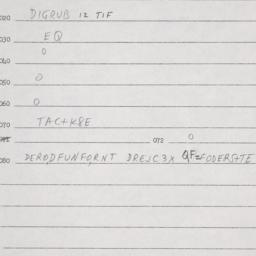 020 DIGRUB 12 TIF
030 EQ
0
040
050 0
060 0
070 TAC+K8E
072 0
080 DEROD,FUNFO,RNT DREJC3X Q,F=FODERS+TE